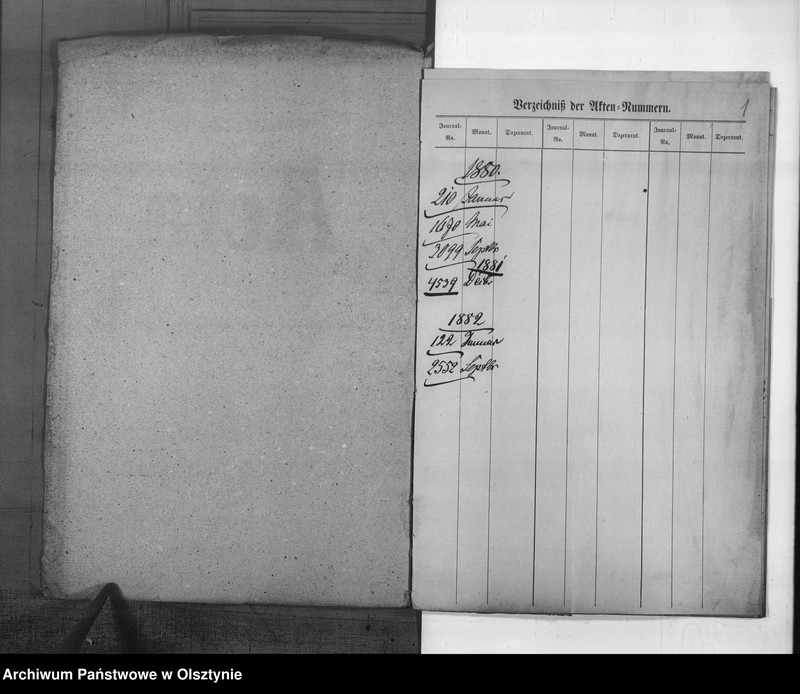 Verzeichniß der Akten=Nummern.
1
Journal-No. Monat. Dezernent. Journal-No. Monat. Dezernent. Journal-No. Monat. Dezernent.
1880.
210 Januar
Mai
3099 Septbr
1881
4539 Decbr
1882
122 Januar
2552 Septbr
Archiwum Państwowe w Olsztynie